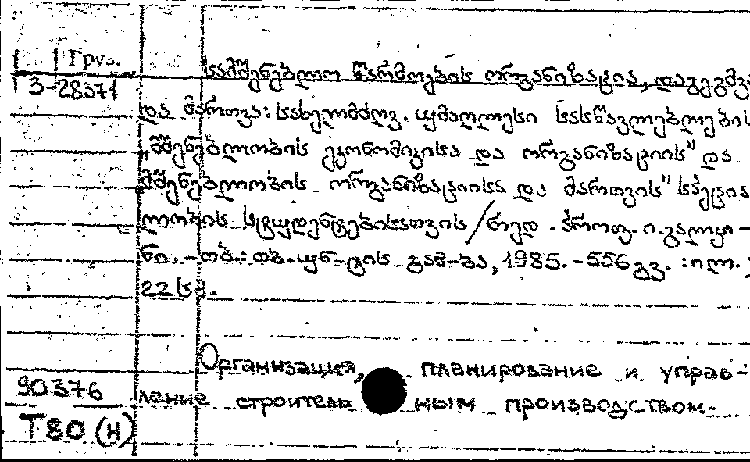 Груз.
3-28371
სამშენებლო წარმოების ორგანიზაცია, დაგეგმვა
და მართვა: სახელმძღვ. უმაღლესი სასწავლებლების
„მშენებლობის ეკონომიკისა და ორგანიზაციის" და
„მშენებლობის ორგანიზაციისა და მართვის" სპეცია
ლობის სტუდენტებისათვის / რედ. პროფ. ი.
ნი. - თბ.: თბ. უნ-ტის გამ-ბა, 1985. - 556 გვ. : ილ.
22 სმ.
Организация, планирование и управ-
90376 ление строитель ным производством.
Т80 (Н)